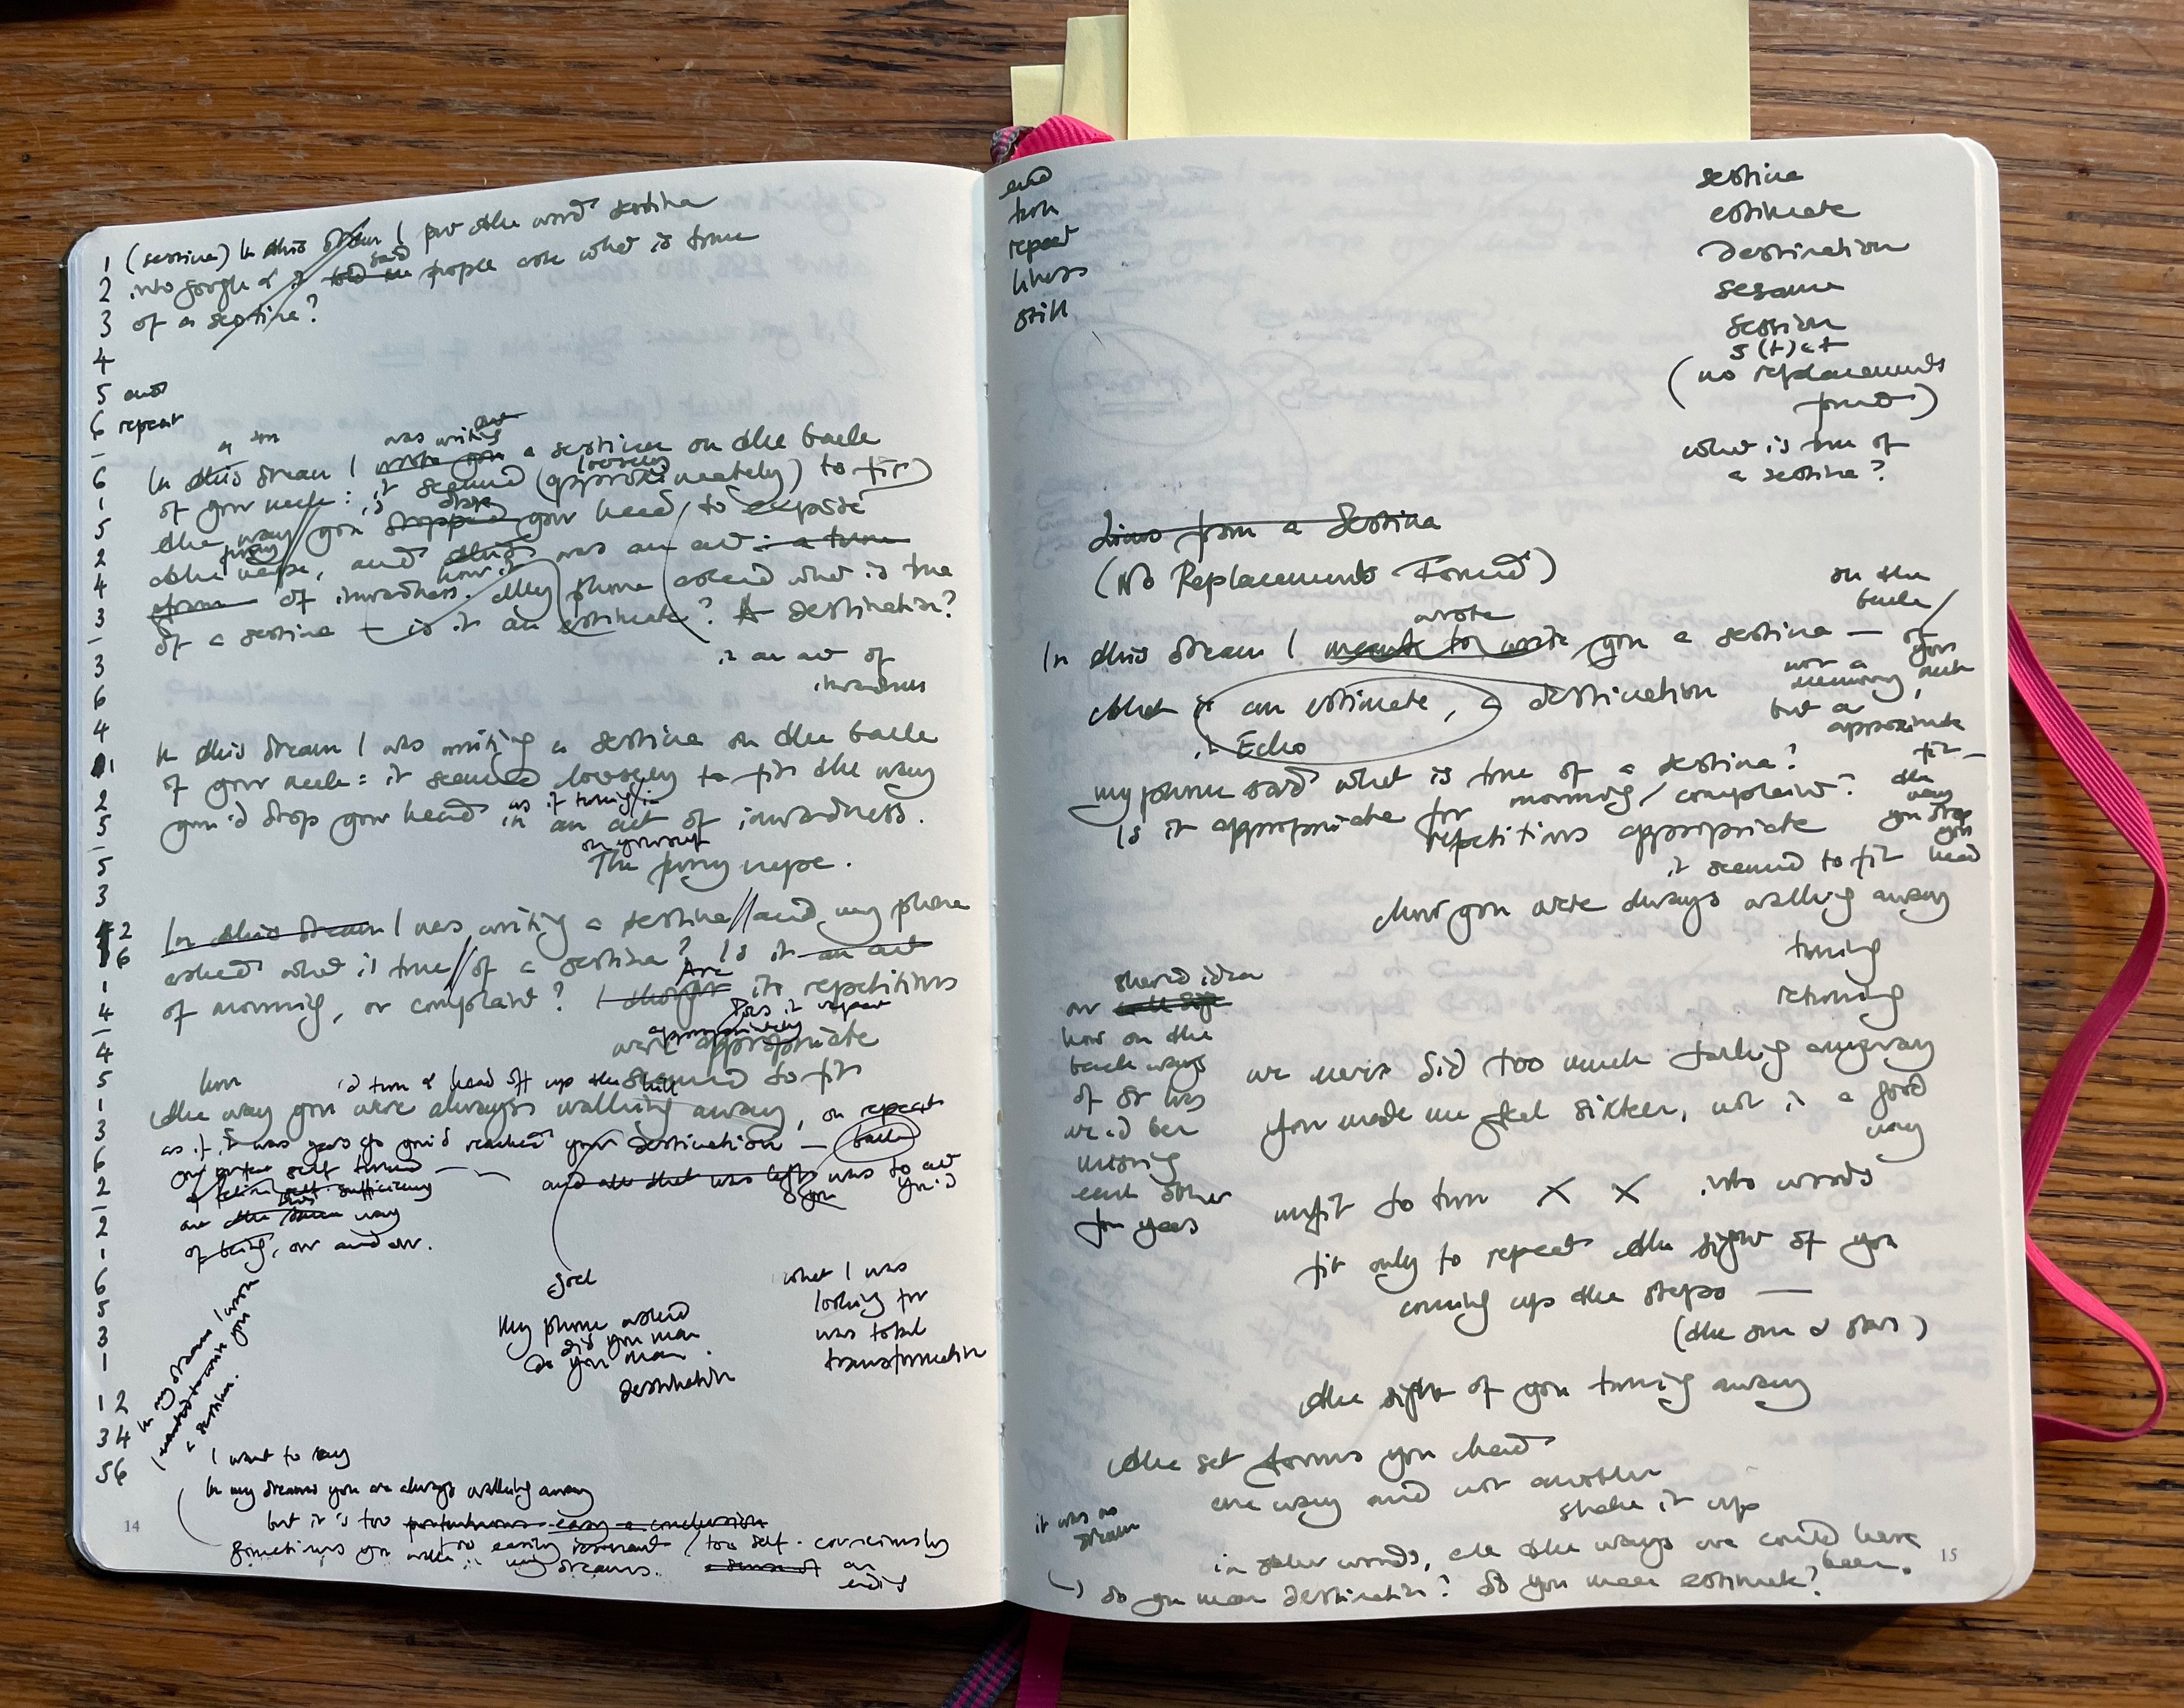 1 (sestina) In this dream I put the word sestina
2 into google & it said people ask what is true
3 of a sestina?
4
5 and
6 repeat
6 In this dream I was writing a sestina on the back
1 of your neck: it seemed (approximately) loosely to fit
5 the way you dropped your head, to expose
2 the nape, and this was an act: a turn
4 of inwardness. My phone asked what is true
3 of a sestina – is it an estimate? A destination?
is an act of
inwardness
3
6
4
1 In this dream I was writing a sestina on the back
2 of your neck: it seemed loosely to fit the way
5 you'd drop your head as if turning in an act of inwardness.
on yourself
5 The nape.
3
2 In this dream I was writing a sestina // and my phone
6 asked what is true // of a sestina? Is it an act
1 of morning, or complaint? I thought Are its repetitions
Does it repeat
appropriately
4 were appropriate
4
5 seemed to fit
1 the way you were always walking away, on repeat
3 as if it was years ago you'd reached your destination – back
6
2 and all that was left was to act
2 way
1 of being, on and on.
6
5
3
1
12
34
56
goal
My phone asked
did you mean
do you mean
destination
what I was
looking for
was total
transformation
In my dreams I
wanted to write you
a sestina.
I want to say
In my dreams you are always walking away
but it is too easy a conclusion
Sometimes you in my dreams.
too easily / too self-consciously
14
end
turn
repeat
likes
still
sestina
estimate
destination
sesame
session
s(t)et
(no replacements
found)
what is true of
a sestina?
Lines from a Sestina
(No Replacements Found)
In this dream I meant to write wrote you a sestina –
on the
back
of
your
neck,
not a
memory
but a
approximate
fit –
the
way
you drop
your
head
that is an estimate, a destination
is Echo
my phone said what is true of a sestina?
Is it appropriate for morning/complaint?
repetitions appropriate
it seemed to fit
how you were always walking away
turning
returning
shared idea
our
how on the
back ways
of
we'd been
missing
each other
for years
we never did too much talking anyway
You made me feel sixteen, not in a good
way
unfit to turn X X into words
fit only to repeat the sight of you
coming up the steps –
(the sun & stars)
the sight of you turning away
the set forms your head
one way and not another
shake it up
it was no
dream
in other words, all the ways we could have
been.
do you mean destination? do you mean estimate?
15